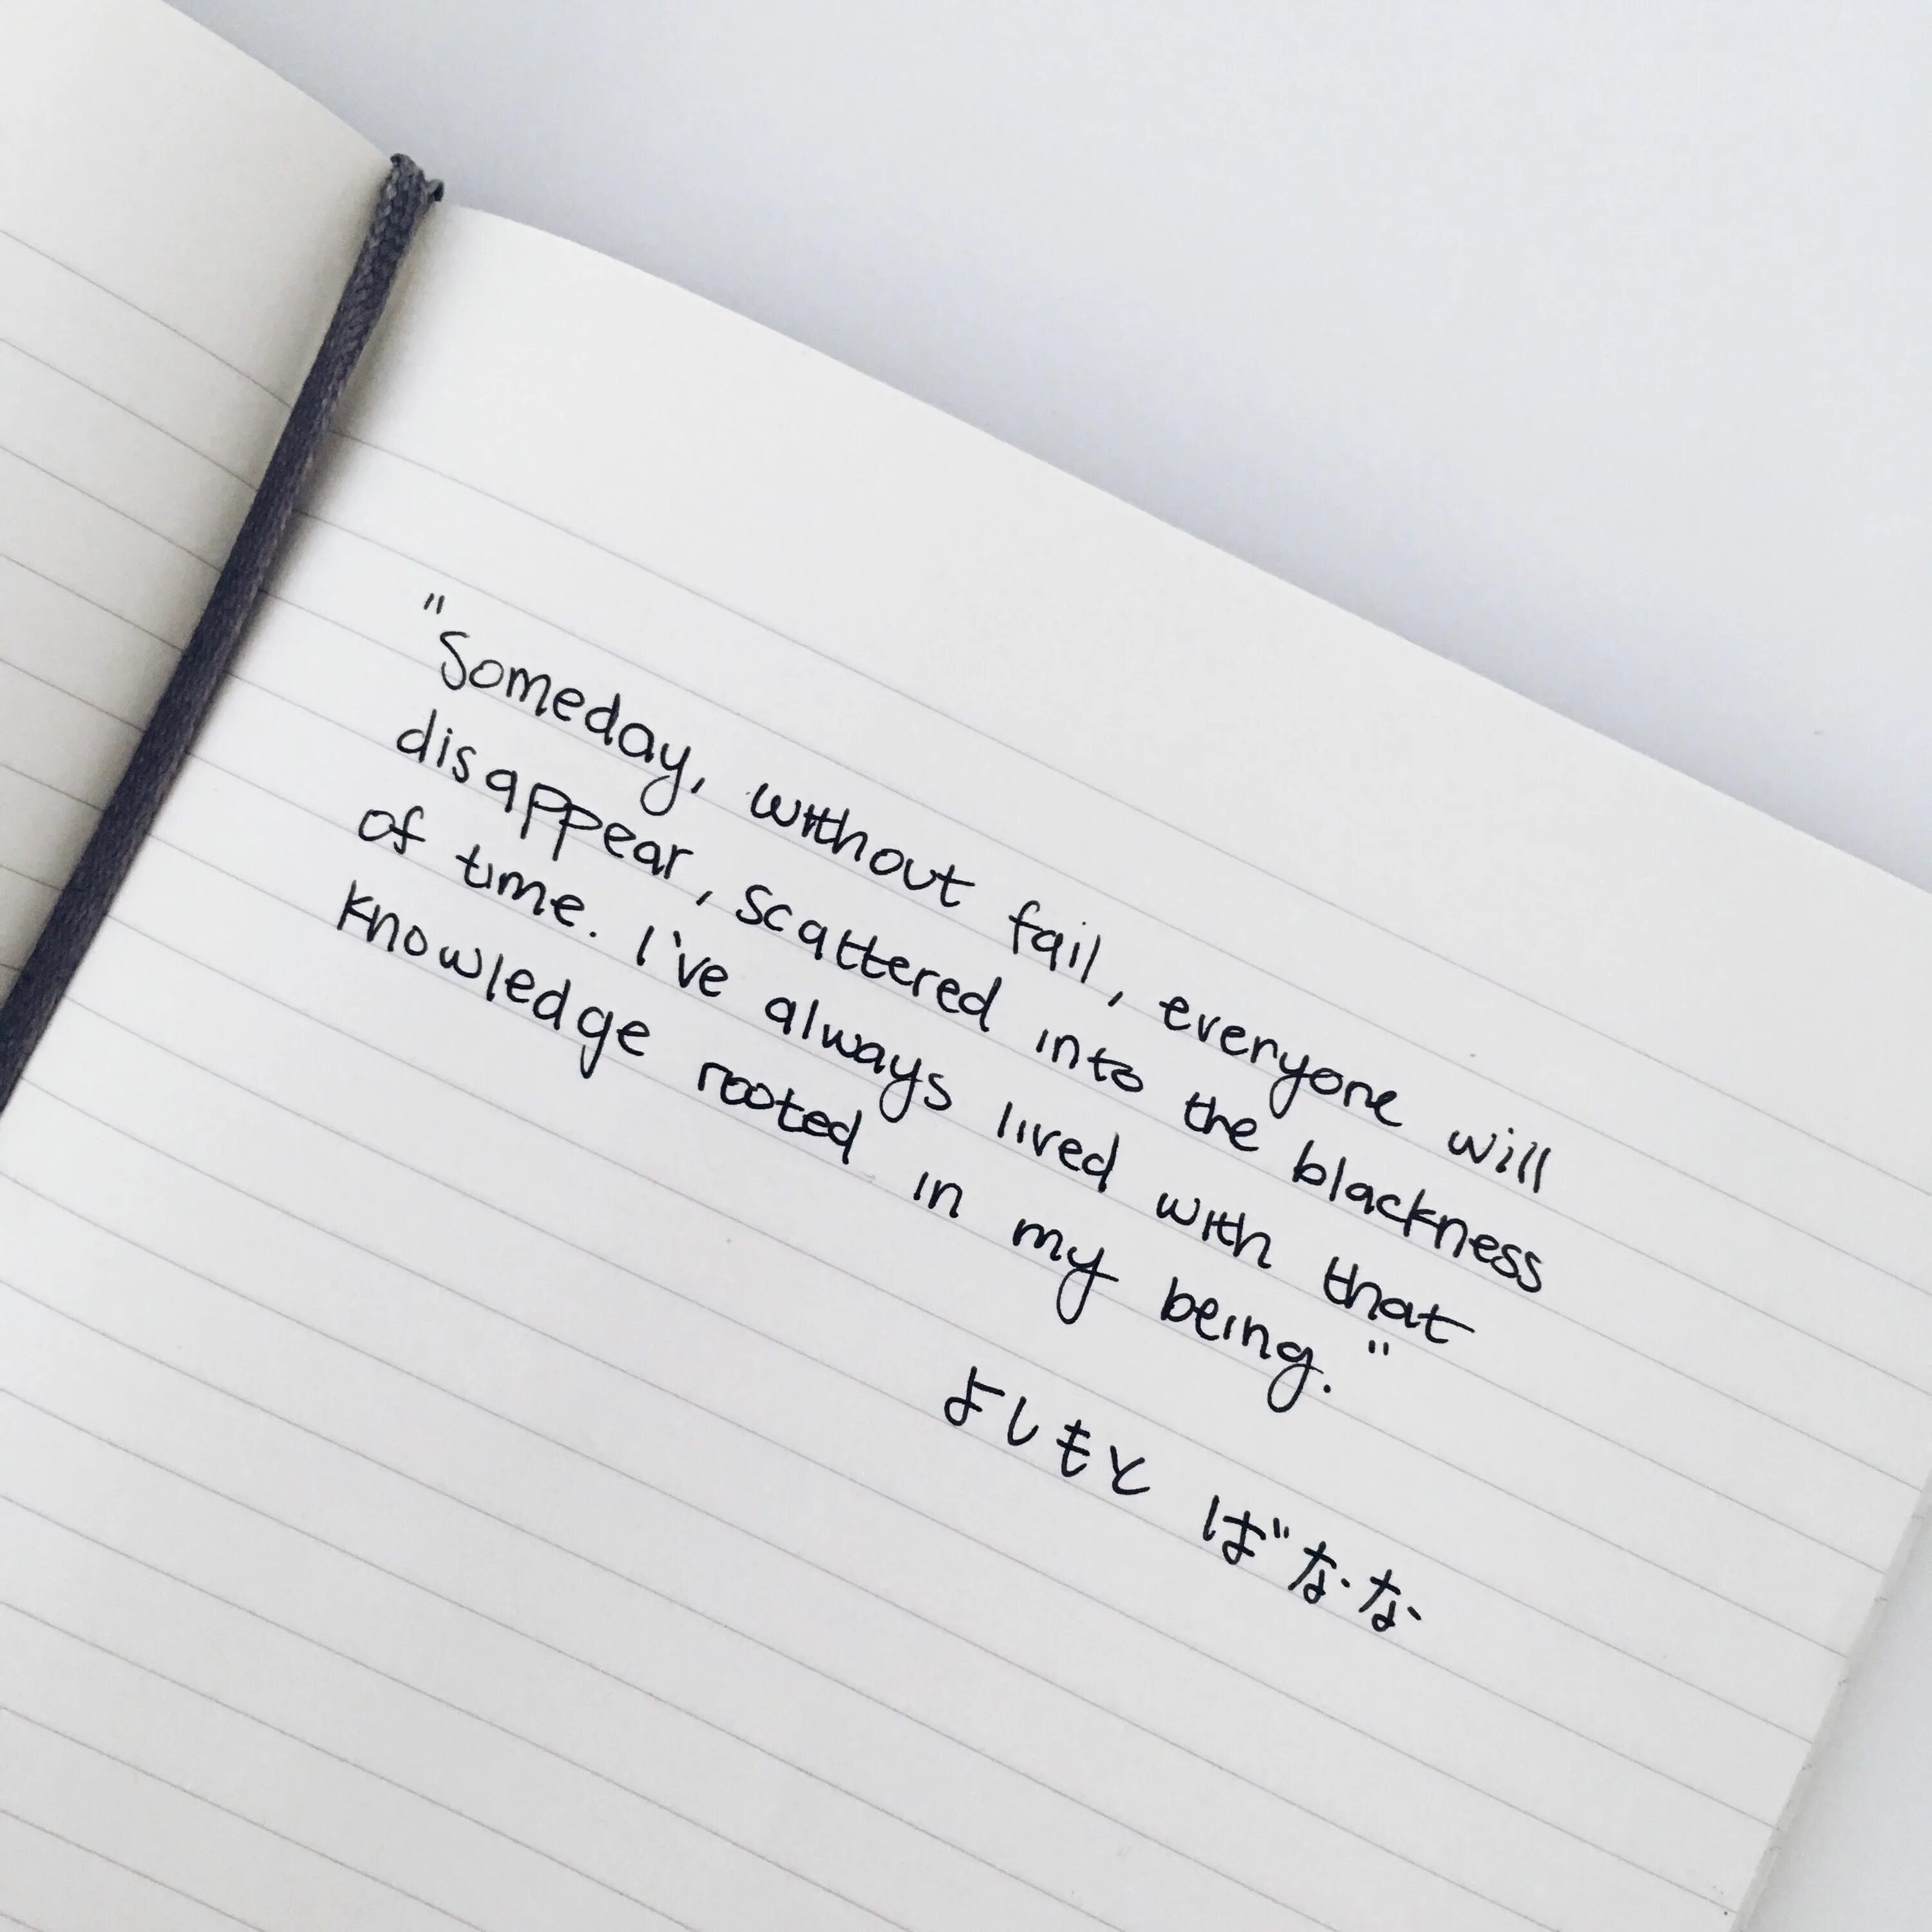 "Someday, without fail, everyone will
disappear, scattered into the blackness
of time. I've always lived with that
knowledge rooted in my being."
よしもと ばなな